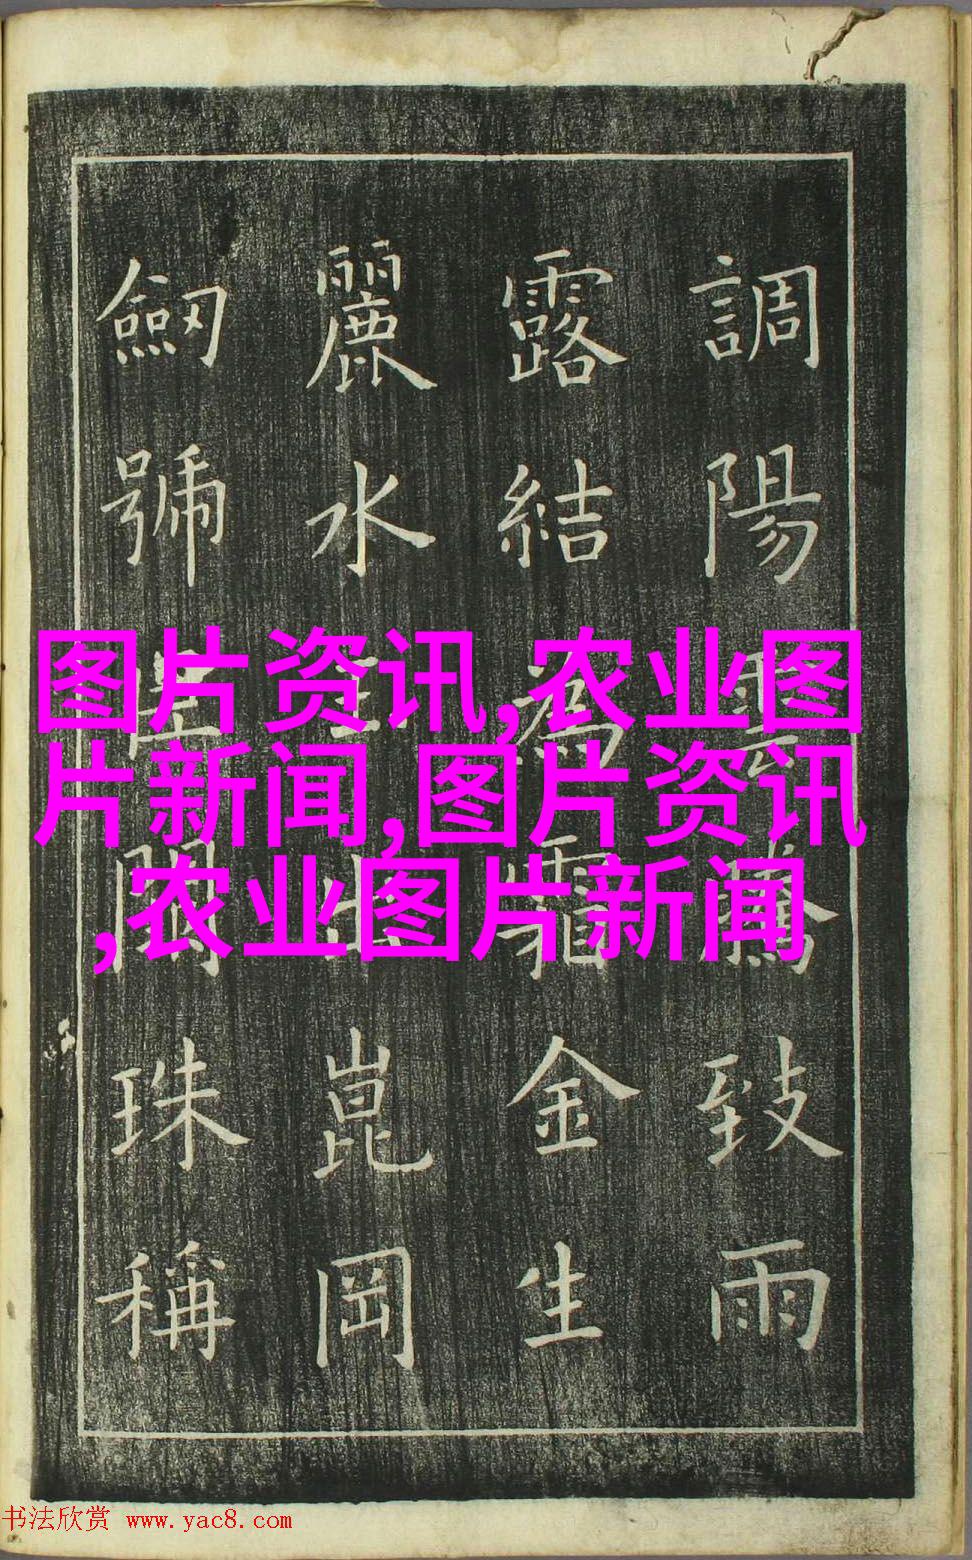 調陽雲騰致雨
露結為霜金生
麗水玉出崑岡
劒號巨闕珠稱
图片资讯,农业图
片新闻,图片资讯
,农业图片新闻
书法欣赏 www.yac8.com